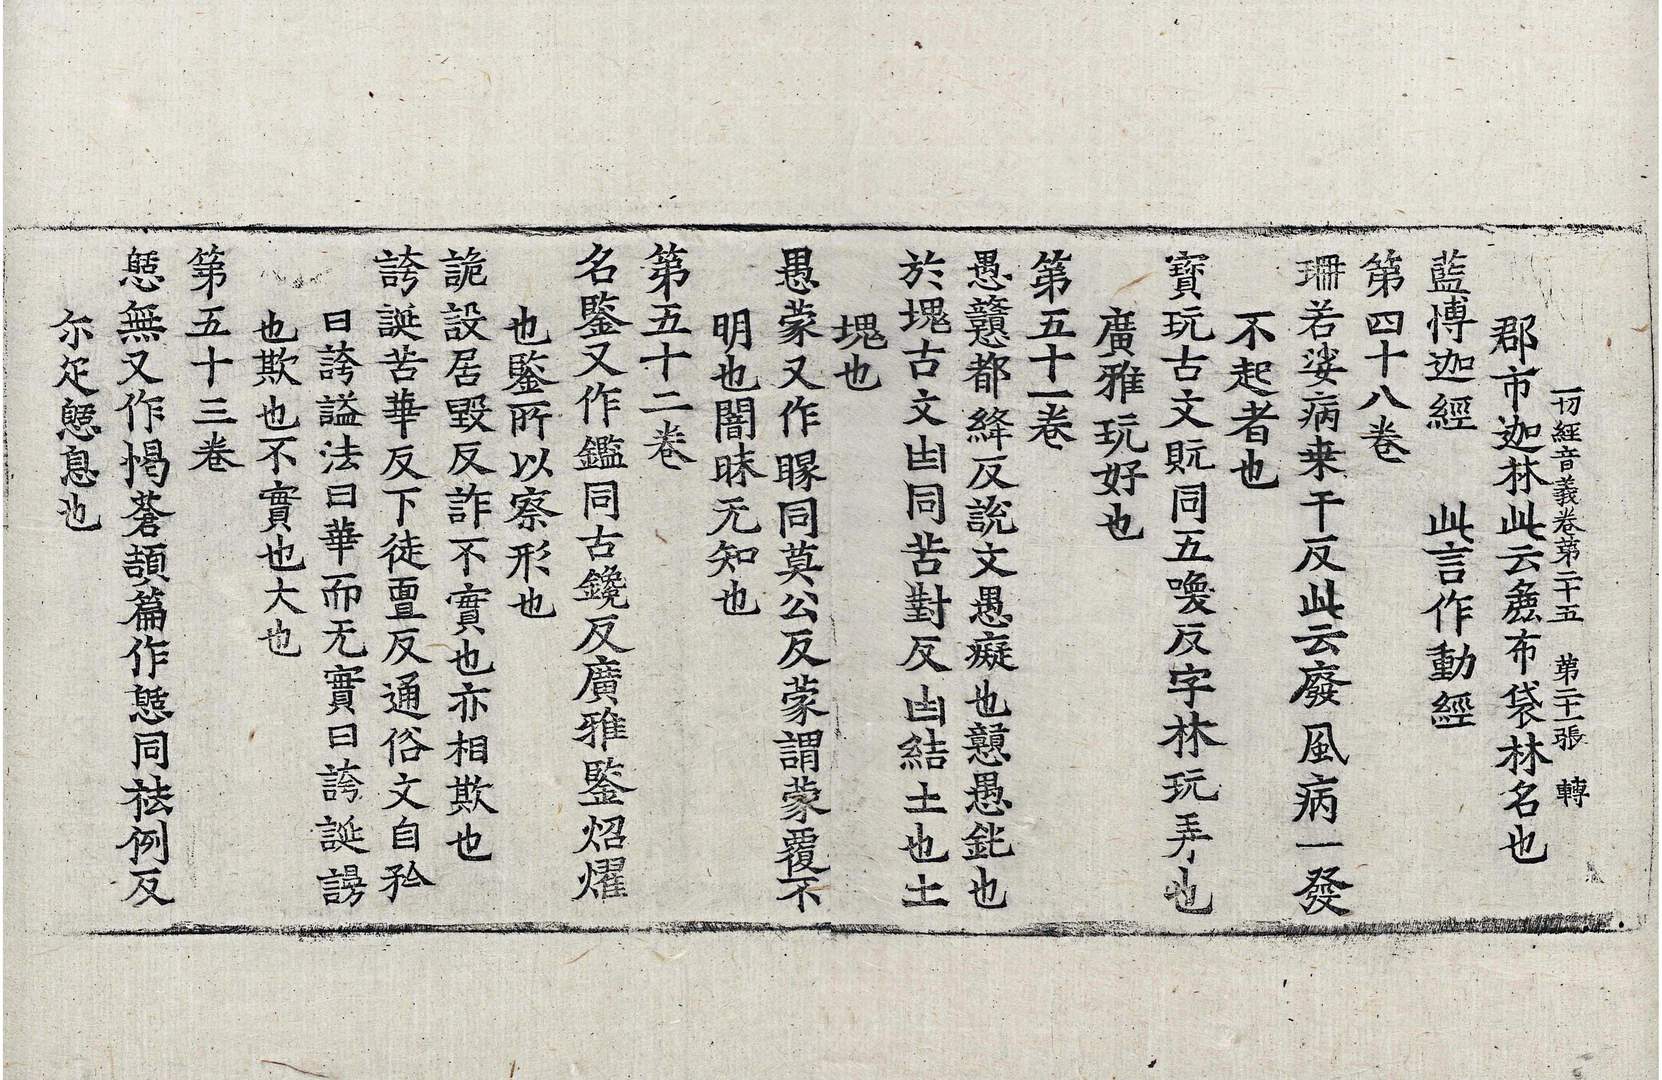 一切經音義卷第二十五　第二十一張　轉
郡市迦林此云麁布袋林名也
藍愽迦經　此言作動經
第四十八卷
珊若娑病桒干反此云廢風病一發
不起者也
寳玩古文貦同五喚反字林玩弄也
廣雅玩好也
第五十一卷
愚戇都絳反説文愚癡也戇愚鈋也
於塊古文凷同苦對反凷結土也土
塊也
愚蒙又作矇同莫公反蒙謂蒙覆不
明也闇昧无知也
第五十二卷
名鋻又作鑑同古鑱反廣雅鋻炤燿
也鋻所以察形也
詭設居毀反詐不實也亦相欺也
誇誕苦華反下徒亶反通俗文自矜
曰誇謚法曰華而无實曰誇誕謾
也欺也不實也大也
第五十三卷
憇無又作愒蒼頡篇作憇同袪例反
尒疋憇息也